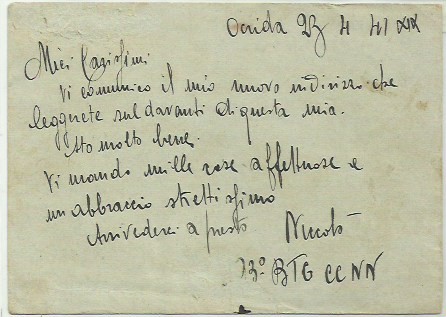 Ocrida 23 4 41 XIX
Miei Carissimi
Vi comunico il mio nuovo indirizzo che
leggete sul davanti di questa mia.
Sto molto bene.
Vi mando mille cose affettuose e
un abbraccio strettissimo
Arrivederci a presto Niccolò
73º BTG CC NN